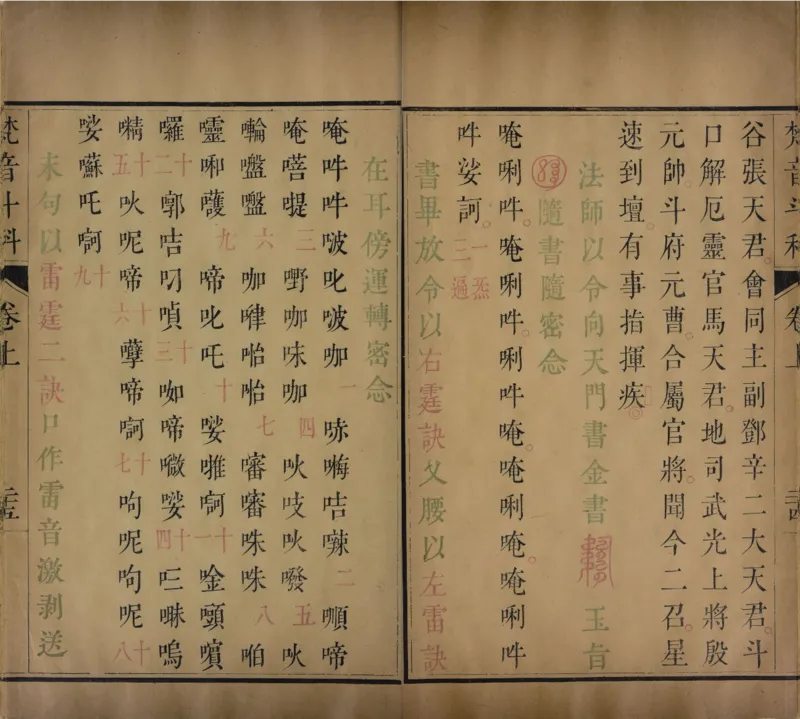 谷張天君。會同主副鄧辛二大天君。斗
口解厄靈官馬天君。地司武光上將殷
元帥。斗府元曹。合屬官將。聞今二召。星
速到壇。有事指揮疾。
法師以令向天門書金書 玉旨
隨書隨密念
唵唎吽。唵唎吽。唎吽唵。唵唎唵。唵唎吽
吽娑訶。一炁三遍
書畢放令以右霆訣叉腰以左雷訣
在耳傍運轉密念
唵吽吽啵叱啵咖一哧㖼咭㗿二㖽啼
唵㗛㖷三嘢咖味咖四吙吱吙㗶五吙
輪㘕㘕六咖嘩咍咍七嚌嚌咮咮八啪
𡅖㖠嚄九啼叱吒十娑㗔訶十一唫頭㘔
囉十二嘟咭叨嗊三十咖啼㘌娑四十叵啉嗚
嘖十五吙呢啼十六孽啼訶十七呴呢呴呢十八
娑囌吒訶十九
末句以雷霆二訣口作雷音激剥送
梵音斗科 卷上